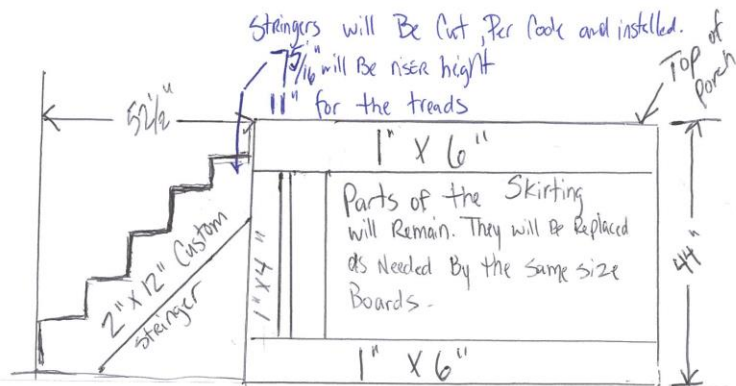 Stringers will Be Cut, Per Code and installed.
7 5/16" will Be riser height
11" for the treads
Top of
Porch
52 1/2"
1" X 6"
Parts of the Skirting
will Remain. They will Be Replaced
as Needed By the same size
Boards.
44"
1" X 4"
2" X 12" Custom
Stringer
1" X 6"